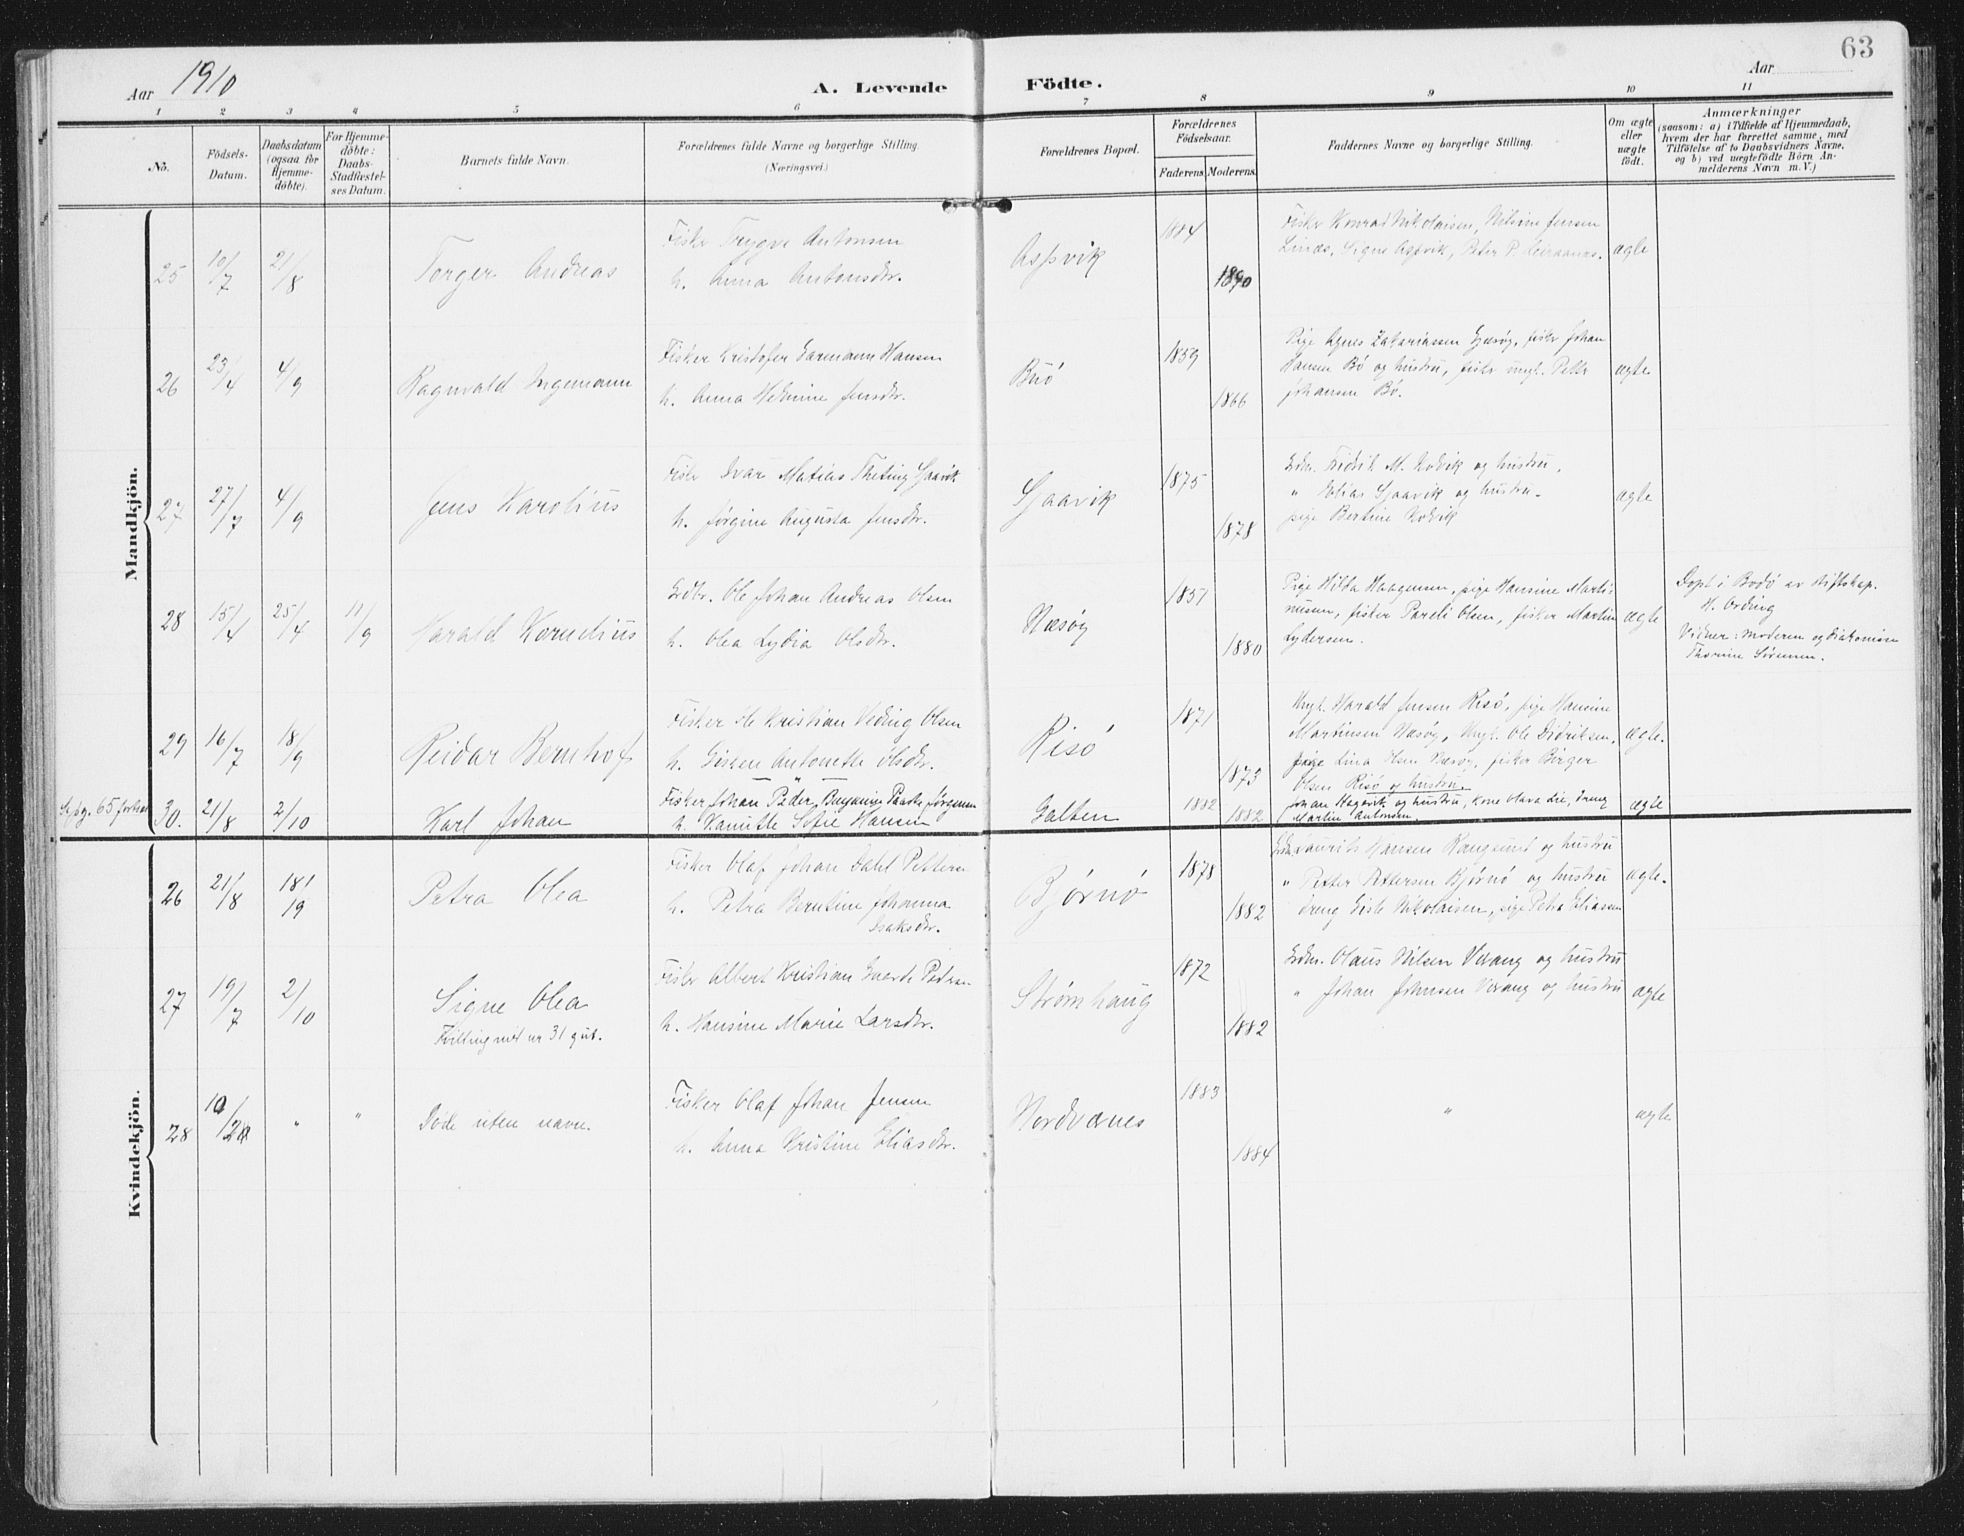 63
Aar 1910
A. Levende Födte.
Aar
1 2 3 4 5 6 7 8 9 10 11
No.
Födsels-Datum.
Daabsdatum (ogsaa for Hjemme-döbte).
For Hjemme-döbte: Daabs-Stadfæstel-ses Datum.
Barnets fulde Navn.
Forældrenes fulde Navne og borgerlige Stilling. (Næringsvei.)
Forældrenes Bopæl.
Forældrenes Födselsaar.
Faderens. Moderens.
Faddernes Navne og borgerlige Stilling.
Om ægte eller uægte födt.
Anmærkninger
(saasom: a) i Tilfælde af Hjemmedaab,
hvem der har forrettet samme, med
Tilföielse af to Daabsvidners Navne,
og b) ved uægtefödte Börn An-
melderens Navn m. V.)
Mandkjön.
25 10/7 21/8 Torger Andreas
Fisker Trygve Antonsen
h. Anna Antonsdtr.
Aspvik 1884 1890
Fisker Konrad Nikolaisen, Nilsine Jensen
Linæs, Signe Aspvik, Peter P. Leiraanes.
ægte
26 23/4 4/9 Ragnvald Ingemann
Fisker Kristofer Garmann Hansen
h. Anna Hedvine Jensdtr.
Buö 1859 1866
Pige Agnes Zakariassen Gjæsøy, fisker Johan
Hansen Bö og hustru, fisker ungk. Petter
Johansen Bø.
ægte
27 27/7 4/9 Jens Karolius
Fisker Ivar Matias Theting Sjaavik
h. Jørgine Augusta Jensdtr.
Sjaavik 1875 1878
Gdbr. Fridrik M. Nordvik og hustru,
" Elias Sjaavik og hustru
pige Bertine Nordvik
ægte
28 15/4 25/4 11/9 Harald Kornelius
Gdbr. Ole Johan Andreas Olsen
h. Olea Lydia Olsdtr.
Næsøy 1857 1880
Pige Hilda Haagensen, pige Hansine Marti-
nusen, fisker Pareli Olsen, fisker Martin
Lydersen.
ægte
Döpt i Bodö av stiftskap.
H. Ording
Vidner: moderen og diakonisse
Thorine Sørensen.
29 16/7 18/9 Reidar Bernhof
Fisker Ole Kristian Veding Olsen
h. Gisken Antonette Olsdtr.
Risö 1871 1873
Ungk. Harald Jensen Risö, pige Hansine
Martinsen Næsøy, Ungk. Ole Didriksen,
pige Lina Olsen Næsøy, fisker Birger
Olsen Risö og hustru.
ægte.
30. 21/8 2/10 Karl Johan
Fisker Johan Peder Jørgensen
h. Kanutte Sofie Hansen
Galten 1882 1882
Johan Hagevik og hustru, kone Olava Lie, dreng
Martin Antonsen.
ægte
Kvindekjön.
26 21/8 18/9 Petra Olea
Fisker Olaf Johan Dahl Pettersen
h. Petra Berntine Johanna
Isaksdtr.
Bjørnö 1878 1882
Gdbr. Laurits Hansen Kangsund og hustru
" Petter Pettersen Bjørnö og hustru
dreng Gisle Nikolaisen, pige Petra Eliassen
ægte.
27 19/7 2/10 Signe Olea
Tvilling med nr 31 gut.
Fisker Albert Kristian Pedersen
h. Hansine Marie Larsdtr.
Strømhaug 1872 1882
Gdbr. Olaus Nilsen Valvaag og hustru
" Johan Johnsen og hustru
ægte
28 10/28 " " Döde uten navn.
Fisker Olaf Johan Jensen
h. Anna Kristine Eliasdtr.
Nordvernes 1883 1884
"
ægte